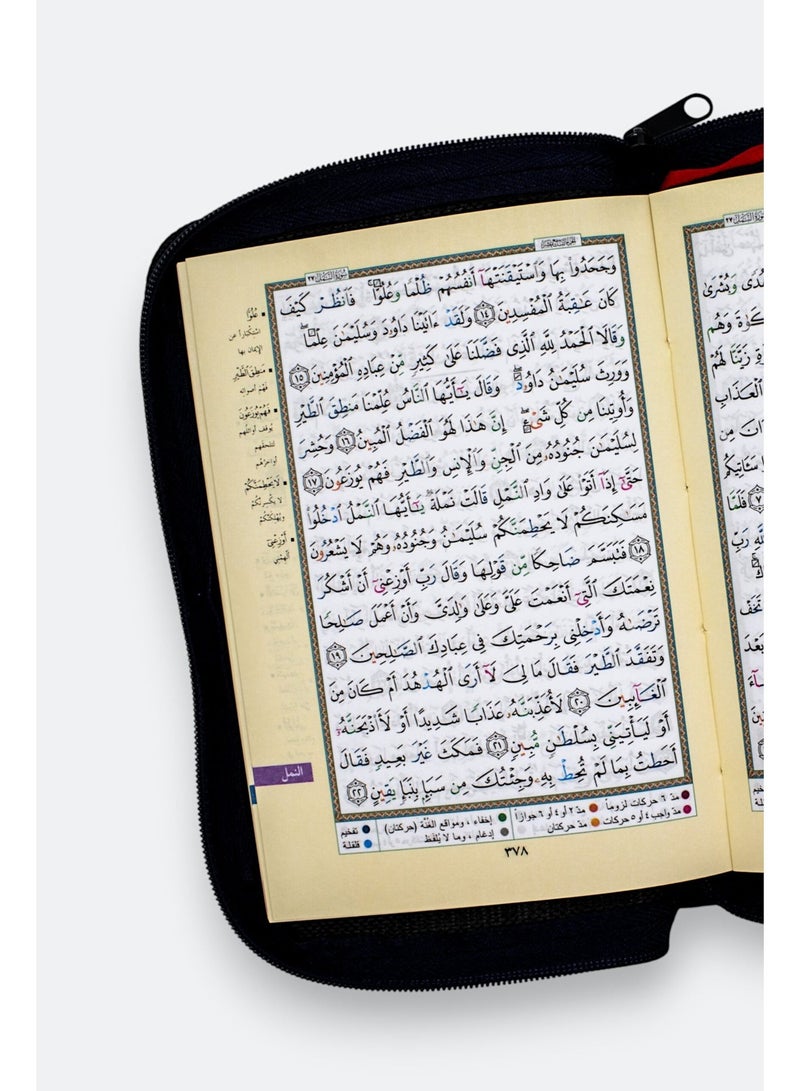 سُورَةُ النَّمْلِ ٢٧
وَجَحَدُوا۟ بِهَا وَٱسْتَيْقَنَتْهَآ أَنفُسُهُمْ ظُلْمًا وَعُلُوًّا ۚ فَٱنظُرْ كَيْفَ
كَانَ عَـٰقِبَةُ ٱلْمُفْسِدِينَ ١٤ وَلَقَدْ ءَاتَيْنَا دَاوُۥدَ وَسُلَيْمَـٰنَ عِلْمًا ۖ
وَقَالَا ٱلْحَمْدُ لِلَّهِ ٱلَّذِى فَضَّلَنَا عَلَىٰ كَثِيرٍ مِّنْ عِبَادِهِ ٱلْمُؤْمِنِينَ ١٥
وَوَرِثَ سُلَيْمَـٰنُ دَاوُۥدَ ۖ وَقَالَ يَـٰٓأَيُّهَا ٱلنَّاسُ عُلِّمْنَا مَنطِقَ ٱلطَّيْرِ
وَأُوتِينَا مِن كُلِّ شَىْءٍ ۖ إِنَّ هَـٰذَا لَهُوَ ٱلْفَضْلُ ٱلْمُبِينُ ١٦ وَحُشِرَ
لِسُلَيْمَـٰنَ جُنُودُهُۥ مِنَ ٱلْجِنِّ وَٱلْإِنسِ وَٱلطَّيْرِ فَهُمْ يُوزَعُونَ ١٧
حَتَّىٰٓ إِذَآ أَتَوْا۟ عَلَىٰ وَادِ ٱلنَّمْلِ قَالَتْ نَمْلَةٌ يَـٰٓأَيُّهَا ٱلنَّمْلُ ٱدْخُلُوا۟
مَسَـٰكِنَكُمْ لَا يَحْطِمَنَّكُمْ سُلَيْمَـٰنُ وَجُنُودُهُۥ وَهُمْ لَا يَشْعُرُونَ
١٨ فَتَبَسَّمَ ضَاحِكًا مِّن قَوْلِهَا وَقَالَ رَبِّ أَوْزِعْنِىٓ أَنْ أَشْكُرَ
نِعْمَتَكَ ٱلَّتِىٓ أَنْعَمْتَ عَلَىَّ وَعَلَىٰ وَٰلِدَىَّ وَأَنْ أَعْمَلَ صَـٰلِحًا
تَرْضَىٰهُ وَأَدْخِلْنِى بِرَحْمَتِكَ فِى عِبَادِكَ ٱلصَّـٰلِحِينَ ١٩
وَتَفَقَّدَ ٱلطَّيْرَ فَقَالَ مَا لِىَ لَآ أَرَى ٱلْهُدْهُدَ أَمْ كَانَ مِنَ
ٱلْغَآئِبِينَ ٢٠ لَأُعَذِّبَنَّهُۥ عَذَابًا شَدِيدًا أَوْ لَأَا۟ذْبَحَنَّهُۥٓ
أَوْ لَيَأْتِيَنِّى بِسُلْطَـٰنٍ مُّبِينٍ ٢١ فَمَكَثَ غَيْرَ بَعِيدٍ فَقَالَ
أَحَطتُ بِمَا لَمْ تُحِطْ بِهِۦ وَجِئْتُكَ مِن سَبَإٍۭ بِنَبَإٍ يَقِينٍ ٢٢
عُلُوًّا
استكباراً عن
الإيمان بها
مَنطِقَ الطَّيْرِ
فهم أصواته
فَهُمْ يُوزَعُونَ
يوقف أوائلهم
لتلحقهم
أواخرهم
لَا يَحْطِمَنَّكُمْ
لا يكسرنكم
ويهلكنكم
أَوْزِعْنِي
ألهمني
النمل
مدّ ٦ حركات لزوماً
مدّ ٢ أو ٤ أو ٦ جوازاً
إخفاء، ومواقع الغُنَّة (حركتان)
تفخيم
مدّ واجب ٤ أو ٥ حركات
مدّ حركتان
إدغام، وما لا يُلفَظ
قلقلة
٣٧٨
سُورَةُ النَّمْلِ ٢٧
هُدًى وَبُشْرَىٰ
وَهُم
زَيَّنَّا لَهُمْ
ٱلْعَذَابِ
مِن
قَلَمَّا
رَبِّ
تَخَفْ
بَعْدَ